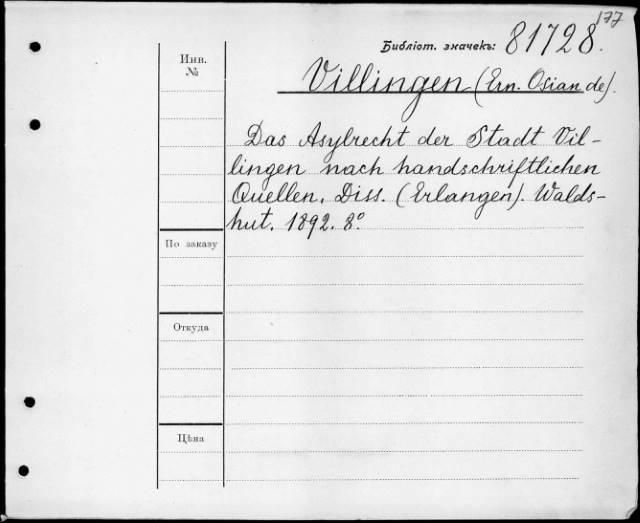 177
Библіот. значекъ: 81728.
Инв.
№
Villingen (Ern. Osian de).
Das Asylrecht der Stadt Vil-
lingen nach handschriftlichen
Quellen. Diss. (Erlangen). Walds-
hut. 1892. 8°.
По заказу
Откуда
Цѣна